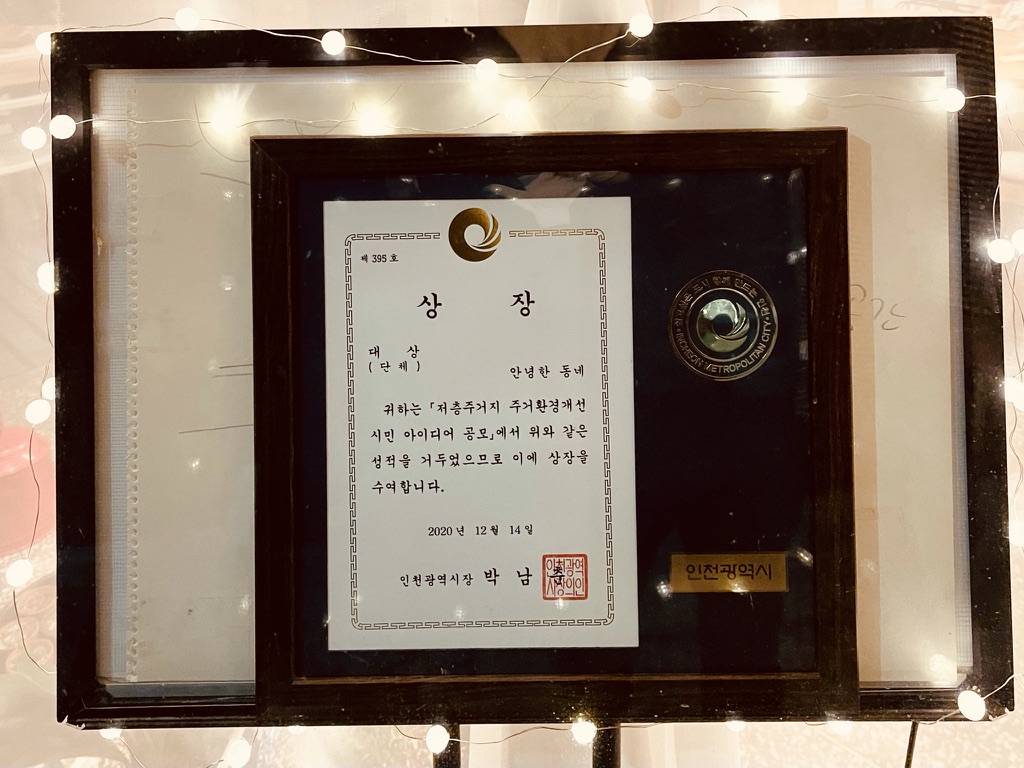 제 395 호
상 장
대 상
( 단 체 )
안녕한 동네
귀하는 「저층주거지 주거환경개선
시민 아이디어 공모」에서 위와 같은
성적을 거두었으므로 이에 상장을
수여합니다.
2020 년 12 월 14 일
인천광역시장 박 남 춘
인천광역
시장의인
살고싶은 도시 함께 만드는 인천
INCHEON METROPOLITAN CITY
인천광역시